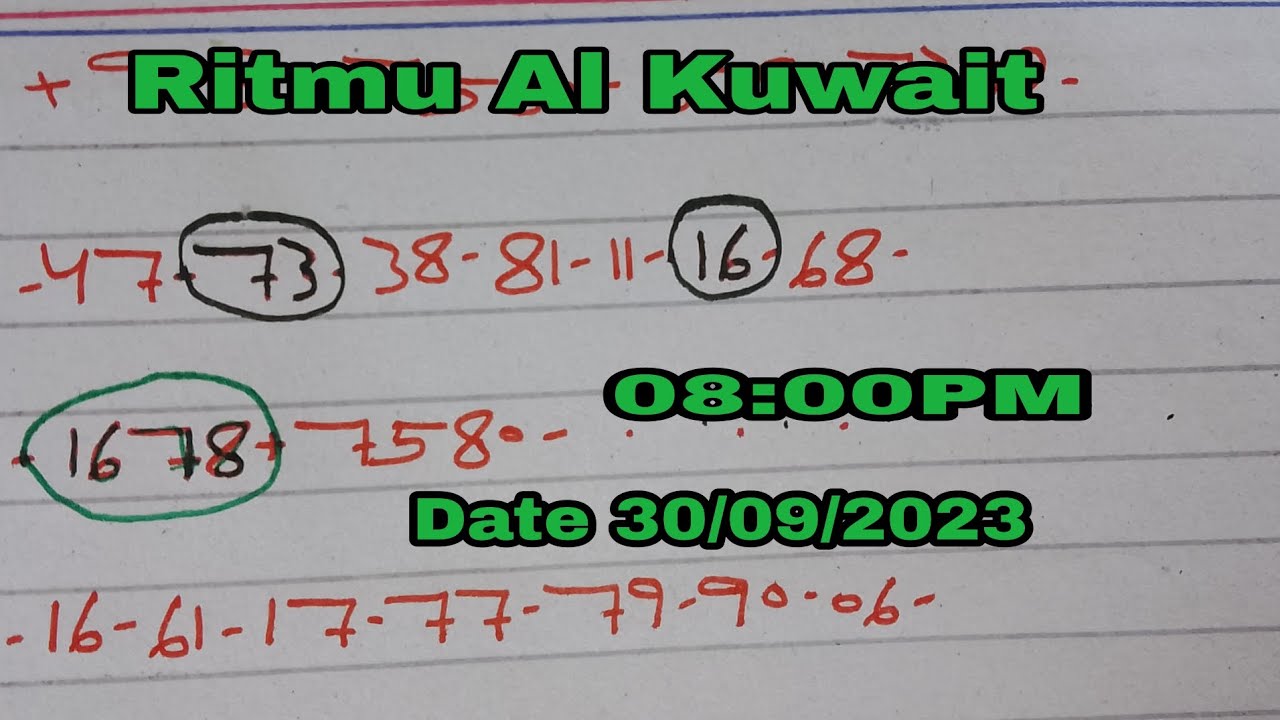 Ritmu Al Kuwait
-47-73-38-81-11-16-68-
08:00PM
-1678+7580-
Date 30/09/2023
-16-61-17-77-79-90-06-